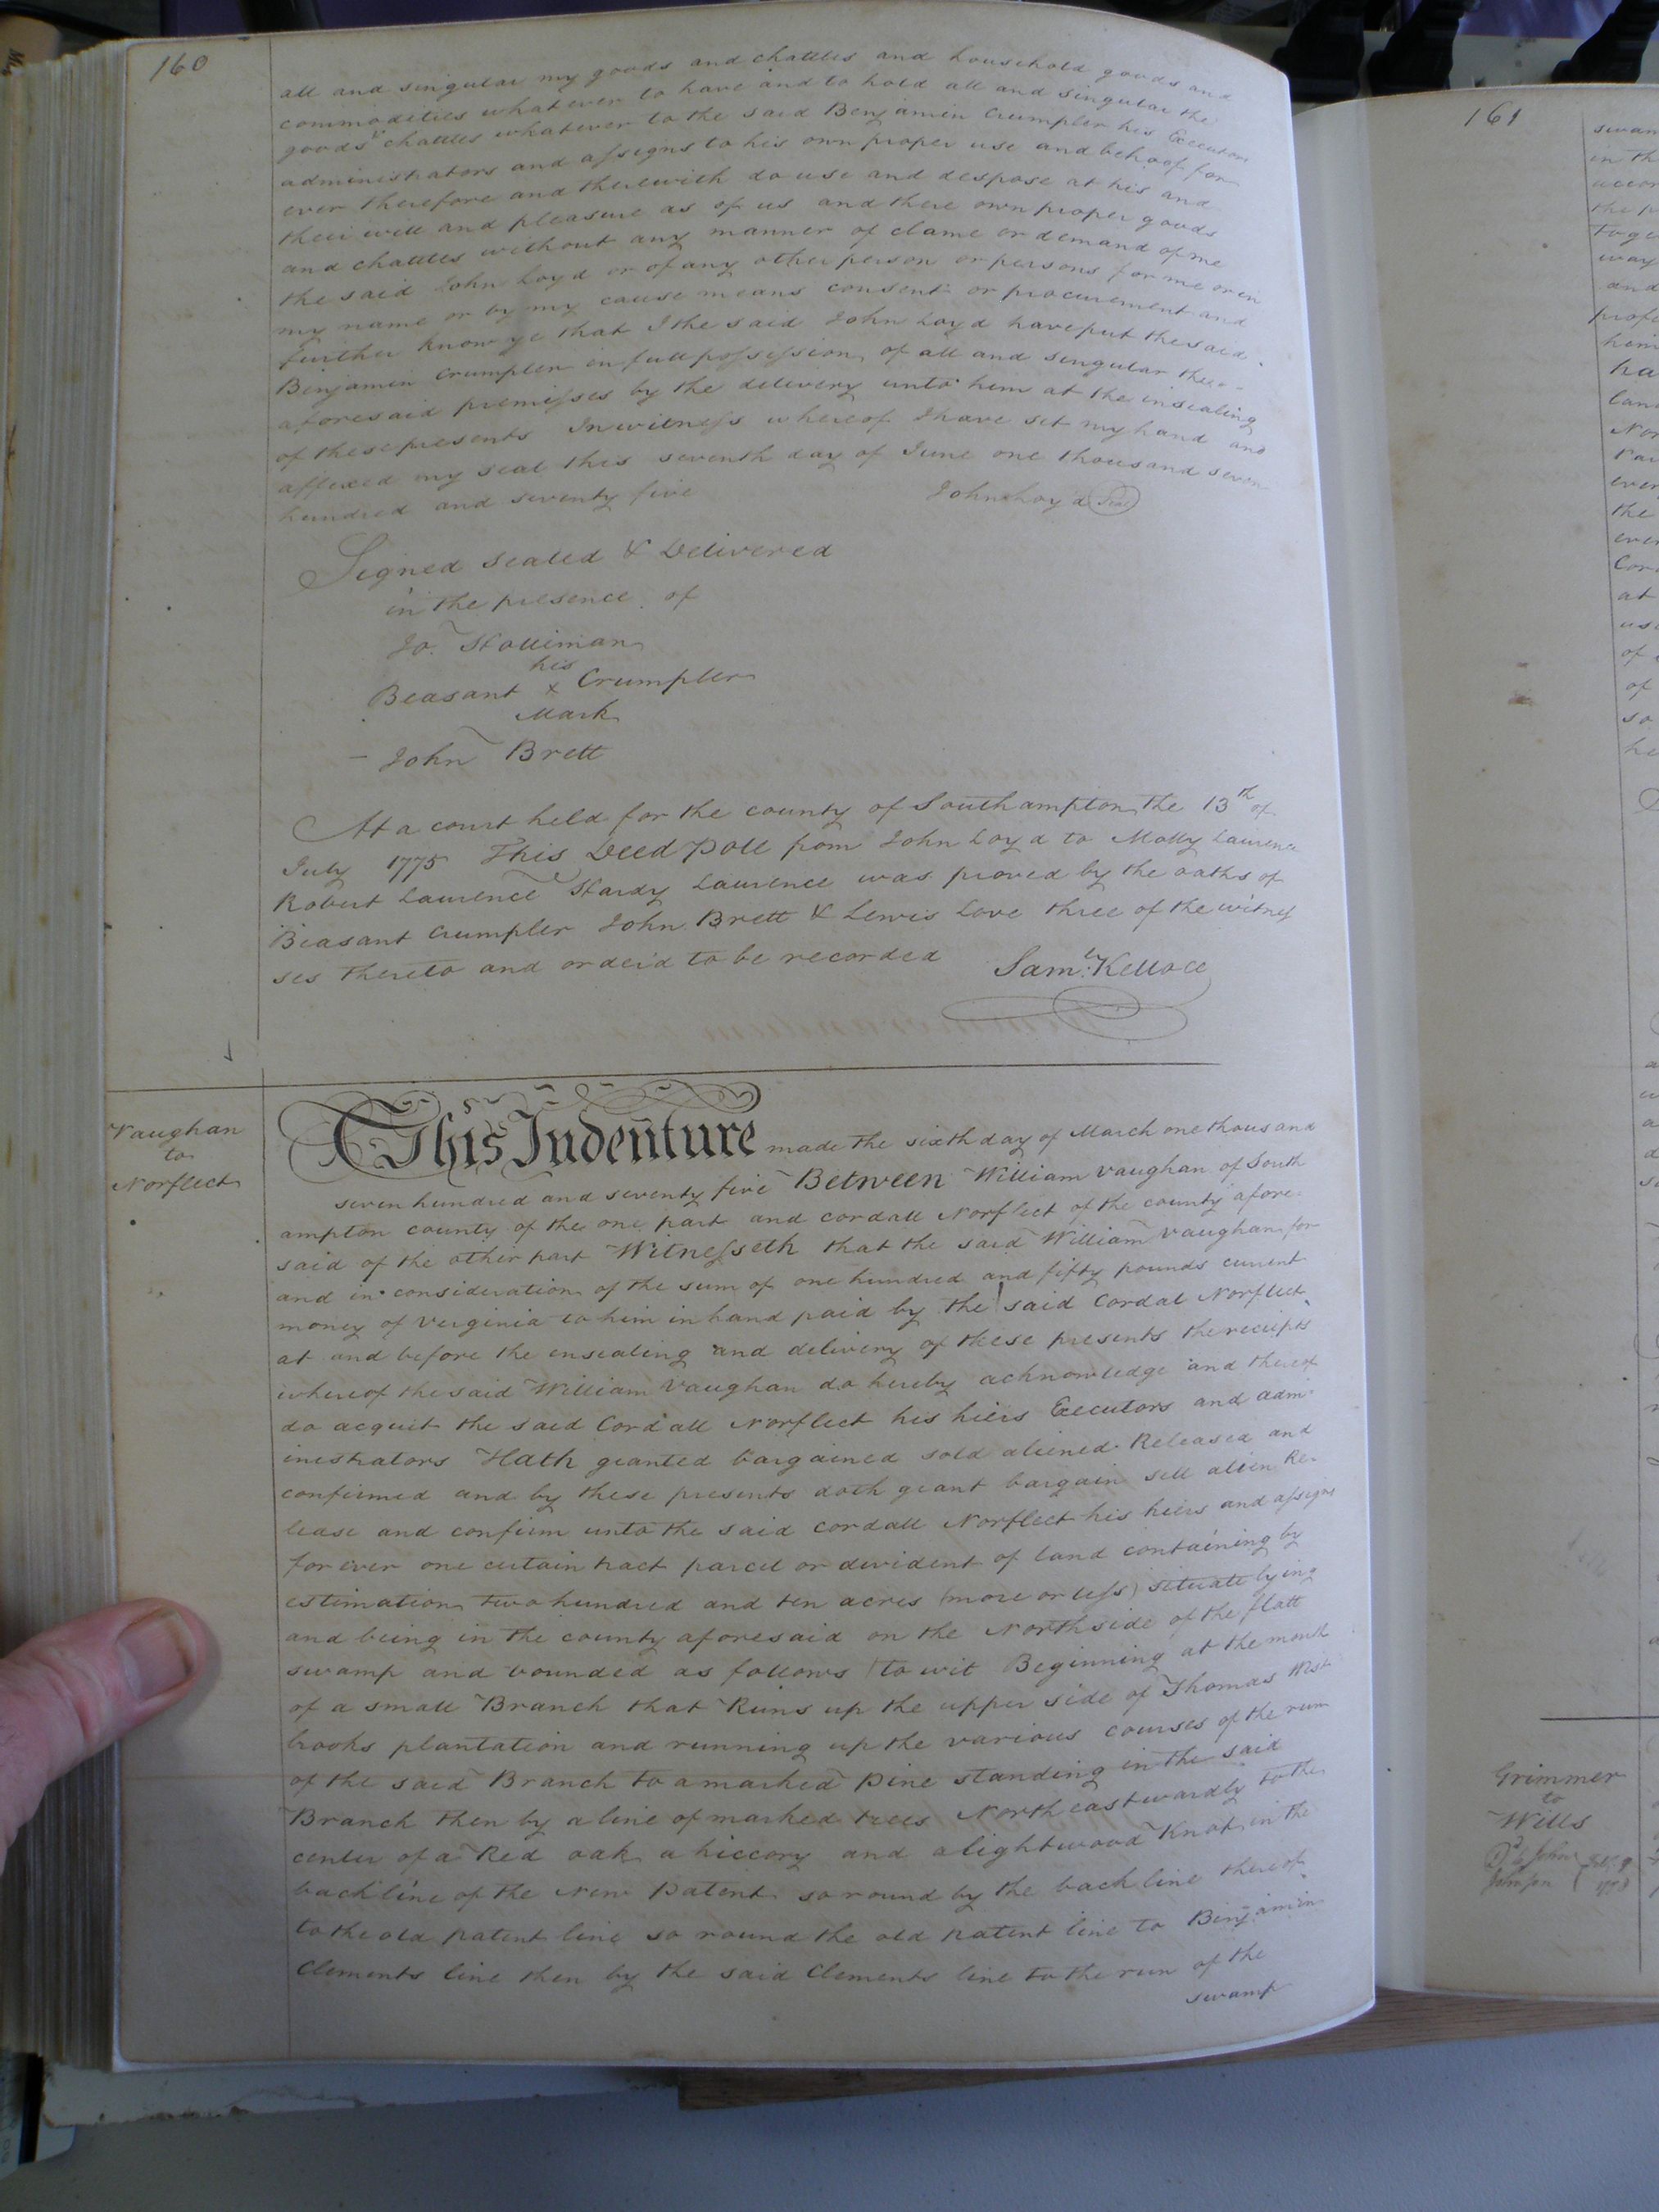 160
all and singular my goods and chattles and household goods and
commodities whatever to have and to hold all and singular the
goods & chattles whatever to the said Benjamin Crumpler his Executors
administrators and assigns to his own proper use and behoof for
ever therefore and therewith do use and despose at his and
their will and pleasure as of us and there own proper goods
and chattles without any manner of clame or demand of me
the said John Loyd or of any other person or persons for me or in
my name or by my cause means consent or procurement and
further know ye that I the said John Loyd have put the said
Benjamin Crumpler in full possession of all and singular the
aforesaid premisses by the delivery unto him at the insealing
of these presents In witness whereof I have set my hand and
affixed my seal this seventh day of June one thousand seven
hundred and seventy five John Loyd Seal
Signed Sealed & Delivered
in the presence of
Jo. Holliman
his
Beasant x Crumpler
Mark
John Brett
At a court held for the county of Southampton the 13th of
July 1775 This Deed Poll from John Loyd to Molly Laurence
Robert Laurence Hardy Laurence was proved by the oaths of
Beasant Crumpler John Brett & Lewis Love three of the witnes
ses thereto and order'd to be recorded Saml. Kello CC
Vaughan
to
Norflect
This Indenture made the sixth day of March one thousand
seven hundred and seventy five Between William Vaughan of South
ampton county of the one part and Cordall Norflect of the county afore
said of the other part Witnesseth that the said William Vaughan for
and in consideration of the sum of one hundred and fifty pounds current
money of Verginia to him in hand paid by the said Cordal Norflect
at and before the ensealing and delivery of these presents the reciepts
whereof the said William Vaughan do hereby acknowledge and thereof
do acquit the said Cordall Norflect his hiers Executors and adm
inistrators Hath granted bargained sold aliened Released and
confirmed and by these presents doth grant bargain sell alien Re
lease and confirm unto the said Cordall Norflect his hiers and assigns
for ever one certain tract parcel or devident of land containing by
estimation two hundred and ten acres (more or less) situate lying
and being in the county aforesaid on the North side of the flatt
swamp and bounded as follows to wit Beginning at the mouth
of a small Branch that Runs up the upper side of Thomas West
brooks plantation and running up the various courses of the run
of the said Branch to a marked Pine standing in the said
Branch then by a line of marked trees North eastwardly to the
center of a Red oak a hiccory and a lightwood Knot in the
back line of the New Patent so round by the back line thereof
to the old patent line so round the old patent line to Benjamin
Clements line then by the said Clements line to the run of the
swamp
161
Grimmer
to
Wills